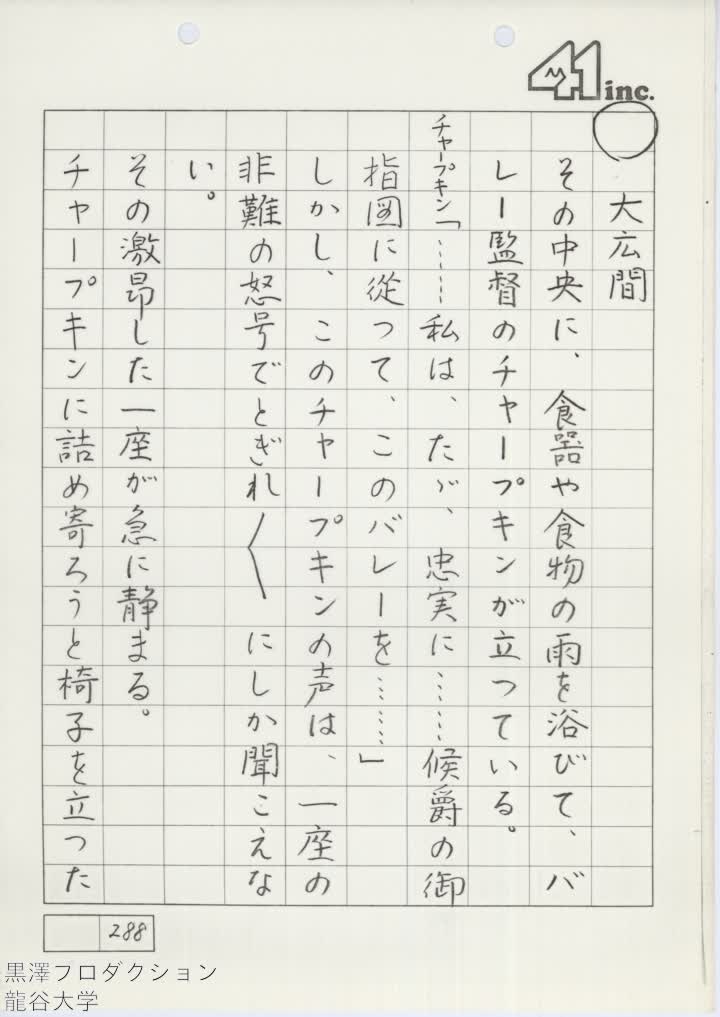 41 inc.
大広間
その中央に、食器や食物の雨を浴びて、バ
レー監督のチャープキンが立つている。
チャープキン「……私は、たゞ、忠実に……候爵の御
指図に従つて、このバレーを……」
しかし、このチャープキンの声は、一座の
非難の怒号でとぎれ〱にしか聞こえな
い。
その激昂した一座が急に静まる。
チャープキンに詰め寄ろうと椅子を立つた
288
黒澤プロダクション
龍谷大学